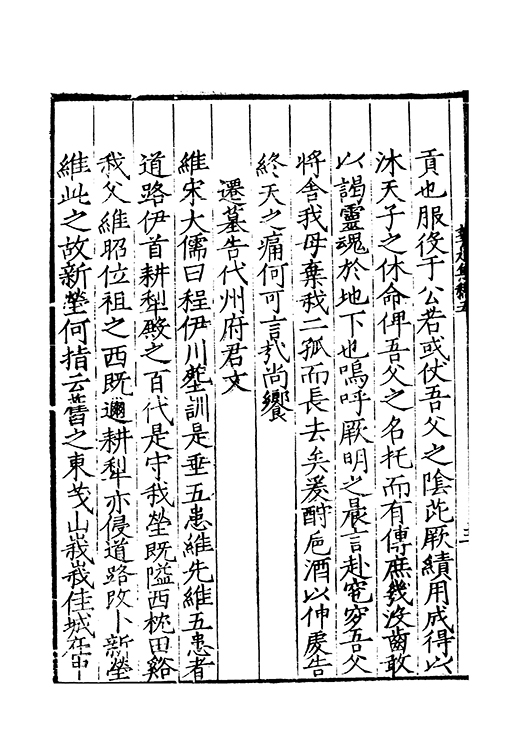 貢也服役于公若或伏吾父之陰芘厥績用成得以
沐天子之休命俾吾父之名托而有傳庶幾没齒敢
以謁靈魂於地下也嗚呼厥明之晨言赴窀穸吾父
將舍我母棄我二孤而長去矣爰酹巵酒以伸處告
終天之痛何可言㢤尚饗
遷墓告代州府君文
維宋大儒曰程伊川塟訓是垂五患維先維五患者
道路伊首耕犁殿之百代是守我塋既隘西枕田谿
我父維昭位祖之西既邇耕犁亦侵道路改卜新塋
維此之故新塋何指云舊之東茭山峩峩佳城在中